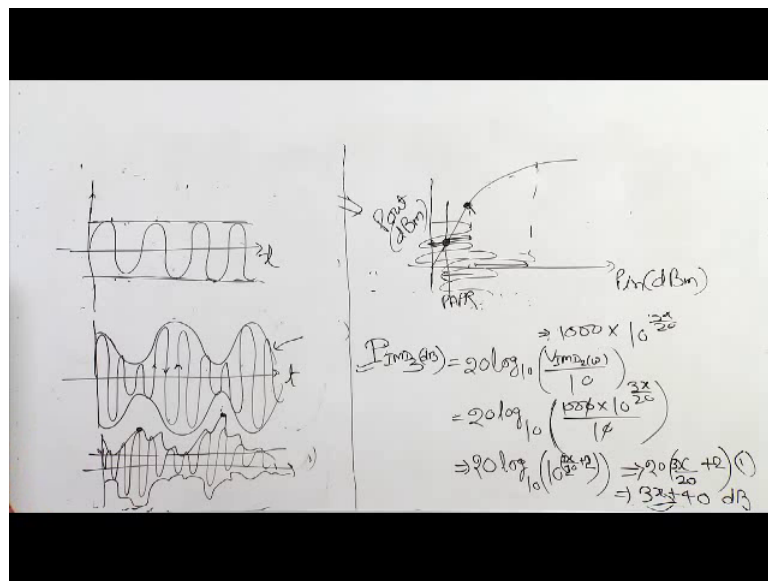 t
t
Pout
(dBm)
Pin(dBm)
PAPR
⇒ 1000 × 10^(3x/20)
P_IMD3(dB) = 20log₁₀(V_IMD3(ω)/10)
= 20log₁₀(1000×10^(3x/20)/10)
⇒ 20log₁₀(10^(3x/20+2)) ⇒ 20(3x/20+2)(1)
⇒ 3x+40 dB